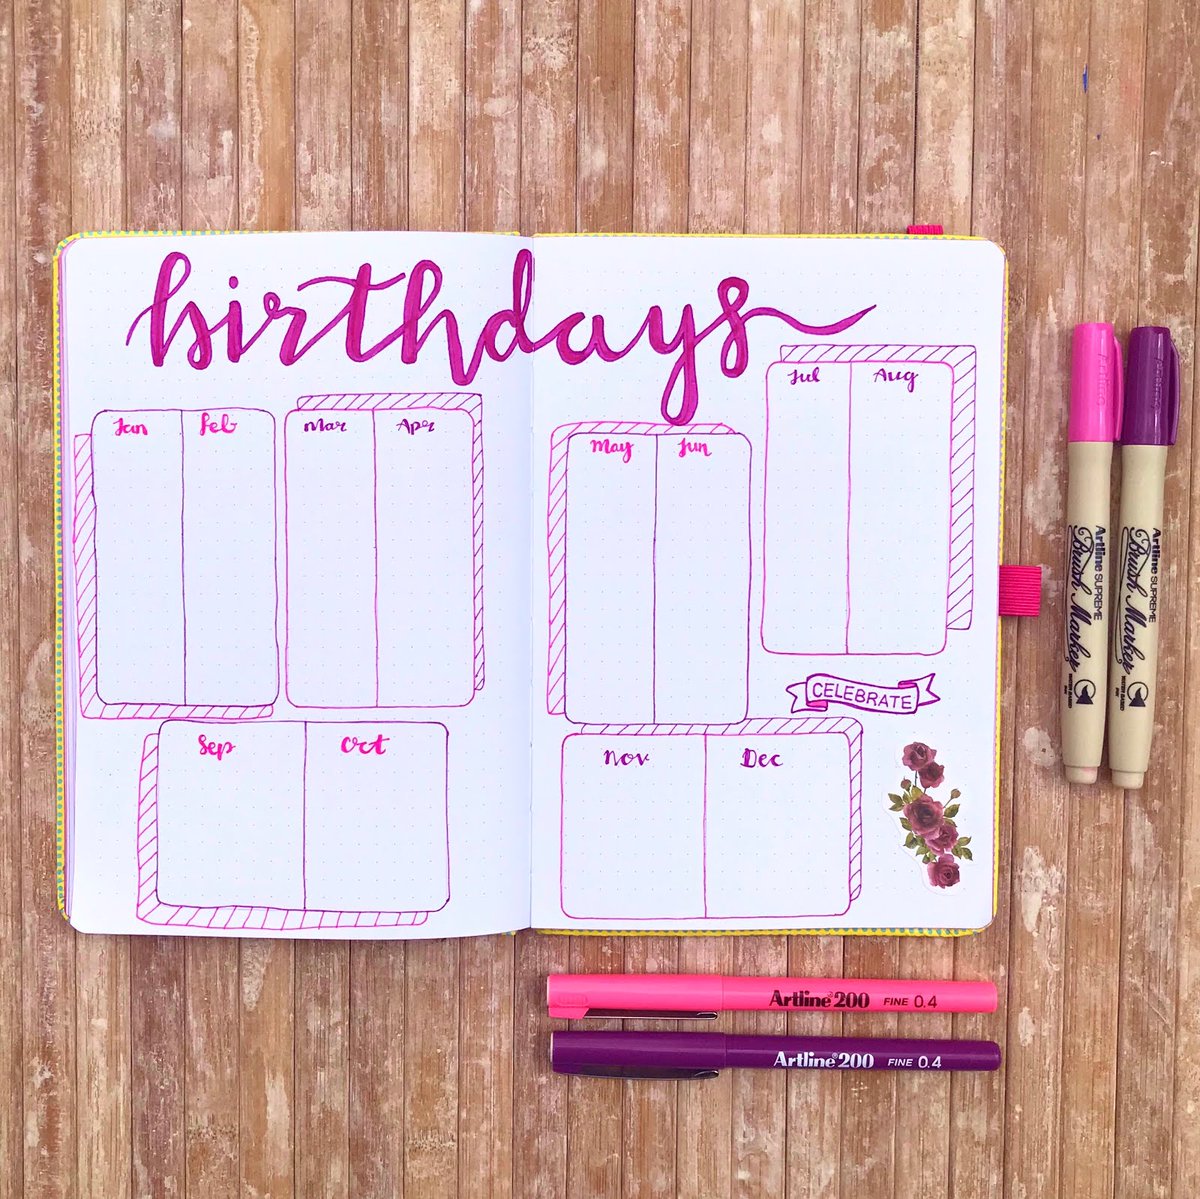 birthdays
Jan Feb
Mar Apr
May Jun
Jul Aug
CELEBRATE
Sep Oct
Nov Dec
Artline SUPREME
Brush Marker
Artline SUPREME
Brush Marker
Artline 200 FINE 0.4
Artline 200 FINE 0.4